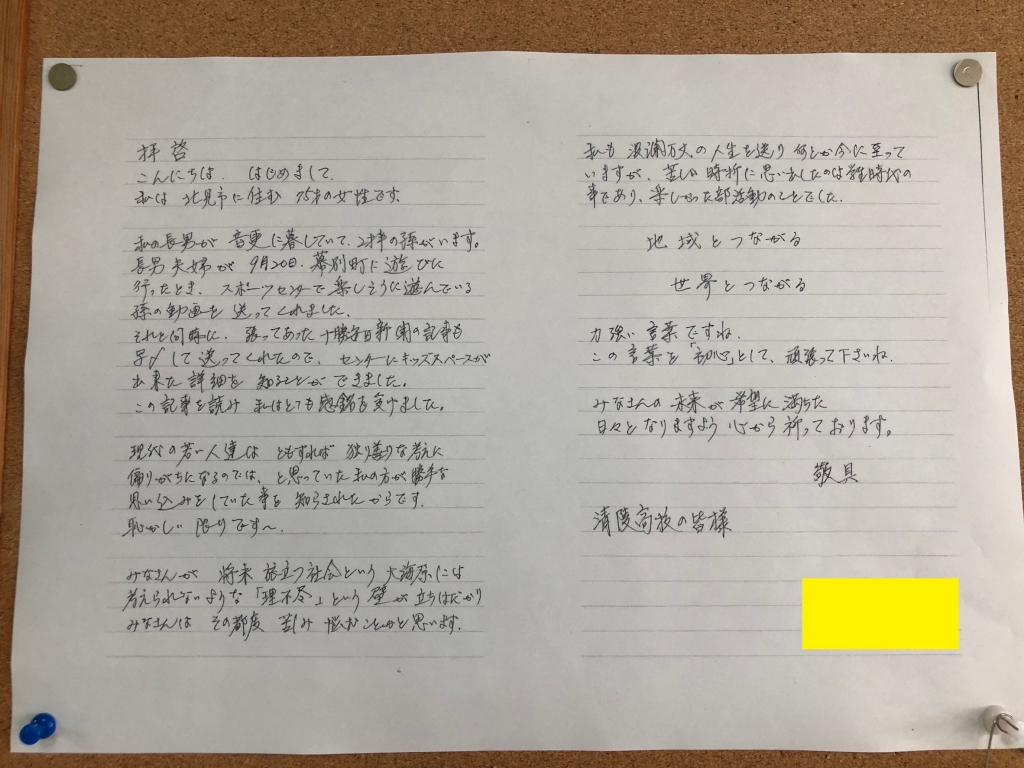 拝啓
こんにちは. はじめまして.
私は 北見市に住む 75才の女性です.
私の長男が 音更に暮していて、2才半の孫がいます。
長男夫婦が 9月20日. 幕別町に遊びに
行ったとき、スポーツセンターで楽しそうに遊んでいる
孫の動画を送ってくれました.
それと同時に、張ってあった十勝毎日新聞の記事も
して送ってくれたので、センターにキッズスペースが
出来た詳細を 知ることができました.
この記事を読み 私はとても感銘を受けました。
現代の若い人達は ともすれば 独り善りな考えに
偏りがちになるのでは、と思っていた私の方が勝手な
思い込みをしていた事を 知らされたからです.
恥かしい 限りです〜.
みなさんが 将来 旅立つ社会という 大海原には
考えられないような「理不尽」という 壁が 立ちはだかり
みなさんは その都度 苦しみ 悩むことかと思います.
私も 波瀾万丈の人生を送り 何とか今に至って
いますが、苦しい時折に思い出したのは学生時代の
事であり、楽しかった部活動のことでした.
地域とつながる
世界とつながる
力強い言葉ですね.
この言葉を「初心」として、頑張って下さいね.
みなさんの未来が希望に満ちた
日々となりますよう 心から祈っております。
敬具
清陵高校の皆様